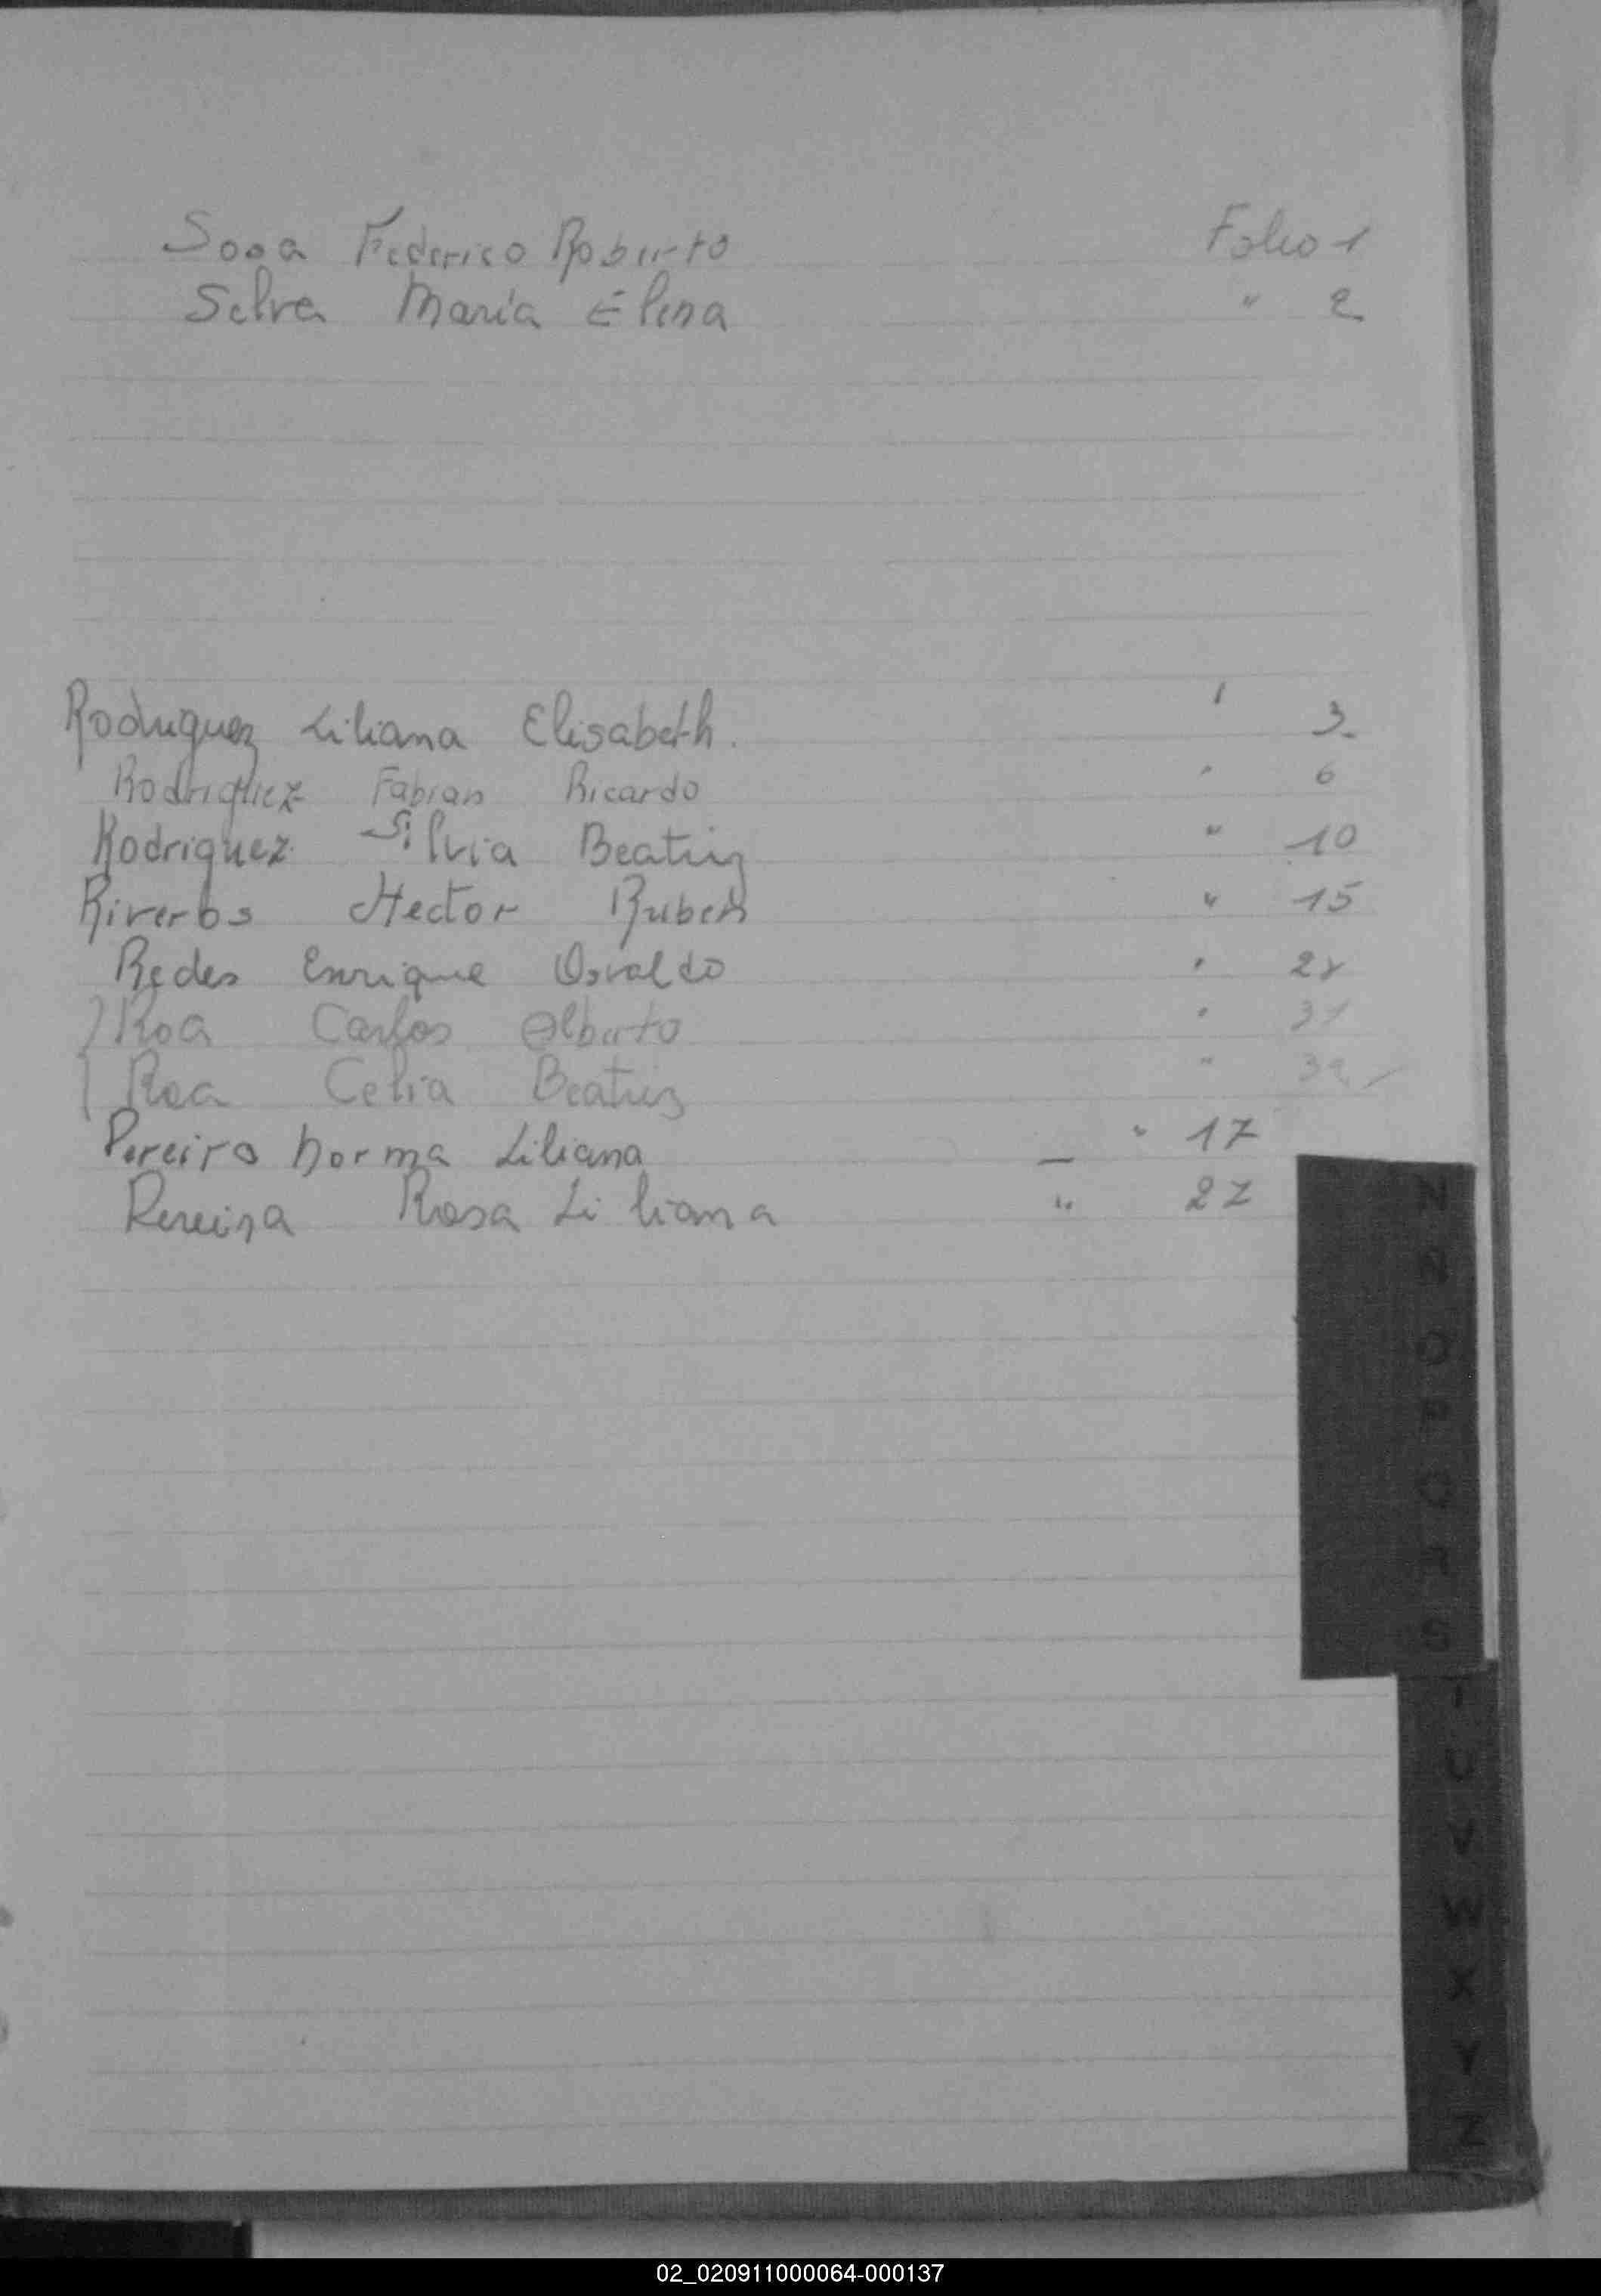 Sosa Federico Roberto Folio 1
Selva María Elena " 2
Rodriguez Liliana Elisabeth. " 3
Rodriguez Fabian Ricardo " 6
Rodriguez Silvia Beatriz " 10
Riveros Hector Ruben " 15
Enrique Osvaldo "
Roa Carlos Alberto " 31
Roa Celia Beatriz " 32
Pereira Norma Liliana — " 17
Pereira Rosa Liliana " 27
N
Ñ
O
P
Q
R
S
T
U
V
W
X
Y
Z
02_020911000064-000137